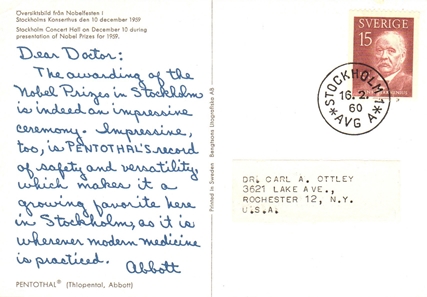 Översiktsbild från Nobelfesten i
Stockholms Konserthus den 10 december 1959
Stockholm Concert Hall on December 10 during
presentation of Nobel Prizes for 1959.
Dear Doctor:
The awarding of the
Nobel Prizes in Stockholm
is indeed an impressive
ceremony. Impressive,
too, is PENTOTHAL'S record
of safety and versatility,
which makes it a
growing favorite here
in Stockholm, as it is
wherever modern medicine
is practiced.
Abbott
PENTOTHAL® (Thiopental, Abbott)
Printed in Sweden Bengtsons Litografiska AB
SVERIGE
15
STOCKHOLM 1
16.2.
60
AVG A
DR. CARL A. OTTLEY
3621 LAKE AVE.,
ROCHESTER 12, N.Y.
U.S.A.